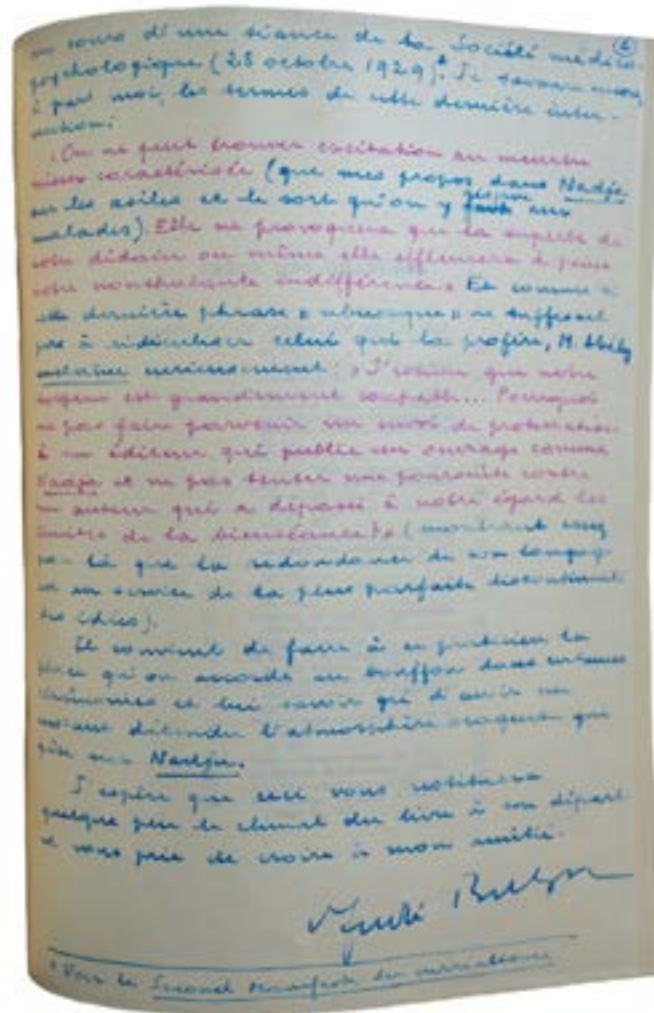 ④
au cours d'une séance de la Société médico-
psychologique (28 octobre 1929)*. Je savoure encore,
à part moi, les termes de cette dernière inter-
vention:
«On ne peut trouver excitation au meurtre
mieux caractérisée (que mes propos dans Nadja
sur les asiles et le sort qu'on y aux
malades). Elle ne provoquera que la superbe de
notre dédain ou même elle effleurera à peine
notre nonchalante indifférence.» Et comme si
cette dernière phrase « ubuesque » ne suffisait
pas à ridiculiser celui qui la profère, M. Abély
curieusement: «J'estime que notre
torpeur est grandement coupable... Pourquoi
ne pas faire parvenir un mot de protestation
à un éditeur qui publie un ouvrage comme
Nadja et ne pas tenter une poursuite contre
un auteur qui a dépassé à notre égard les
limites de la bienséance?» (montrant
par là que la redondance de son langage
est au service de la plus parfaite
des idées).
Il convient de faire à ce praticien la
place qu'on accorde au bouffon dans certaines
cérémonies et lui savoir gré d'avoir un
instant détendu l'atmosphère orageuse qui
pèse sur Nadja.
J'espère que ceci vous restituera
quelque peu le climat du livre à son départ
et vous prie de croire à mon amitié.
André Breton
* Voir le Second Manifeste du surréalisme